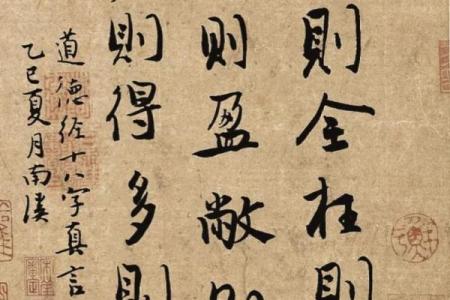 則全枉則
則盈敝
則得多則
道德經十八字真言
乙巳夏月南溪